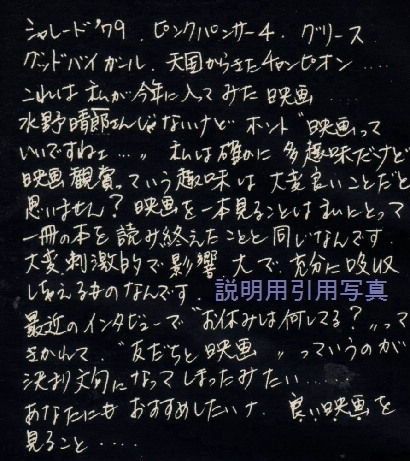 シャレード'79. ピンクパンサー4. グリース.
グッドバイガール. 天国からきたチャンピオン....
これは私が今年に入ってみた映画......
水野晴郎さんじゃないけど ホント“映画って
いいですねェ...” 私は確かに多趣味だけど
映画観賞っていう趣味は大変良いことだと
思いません? 映画を一本見ることは私にとって
一冊の本を読み終えたことと同じなんです.
大変刺激的で影響大で.充分に吸収
しちゃえるものなんです.
説明用引用写真
最近のインタビューで“お休みは何してる?”って
きかれて.“友だちと映画”っていうのが
決まり文句になってしまったみたい.....
あなたにもおすすめしたいナ. 良い映画を
見ること....